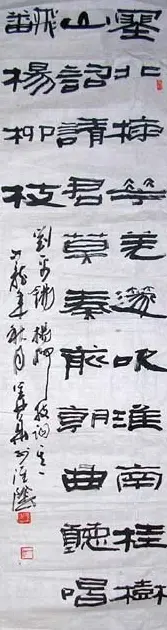 塞北梅花羌篴吹淮南桂樹
山詞請君莫奏前朝曲聽唱
飜楊柳枝
劉禹錫楊柳枝詞
年秋月